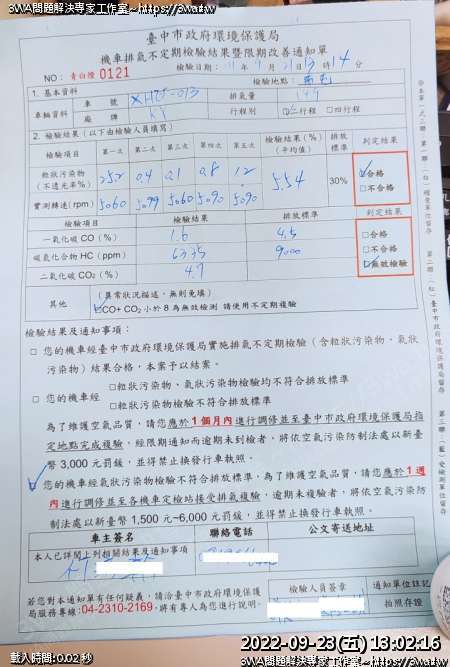 3WA問題解決專家工作室~shawhong.tw
臺中市政府環境保護局
機車排氣不定期檢驗結果暨限期改善通知單
NO: 青白煙 0121
檢驗日期: 年 9月 時 14分
檢驗地點:
1. 基本資料
車輛資料
車 號
排氣量
廠 牌
行程別 二行程 □四行程
2. 檢驗結果(以下由檢驗人員填寫)
檢驗項目 第一次 第二次 第三次 第四次 第五次 檢驗結果(%)(平均值) 排放標準 判定結果
粒狀污染物(不透光率%) 25.2 0.4 0.1 0.8 1.2 5.54 30% ☑合格 □不合格
實測轉速(rpm) 5060 5060 5090 5090
檢驗項目 檢驗結果 排放標準 判定結果
一氧化碳 CO(%) 1.6 4.5 □合格
碳氫化合物 HC(ppm) 6335 9000 □不合格
二氧化碳 CO₂(%) 4.7 ☑無效檢驗
其他
(異常狀況描述,無則免填)
☑CO+ CO₂ 小於 8 為無效檢測 請使用不定期複驗
檢驗結果及通知事項:
□ 您的機車經臺中市政府環境保護局實施排氣不定期檢驗(含粒狀污染物、氣狀
污染物)結果合格,本案予以結案。
□ 您的機車經
□粒狀污染物、氣狀污染物檢驗均不符合排放標準
□粒狀污染物檢驗不符合排放標準
為了維護空氣品質,請您應於1個月內進行調修並至臺中市政府環境保護局指
定地點完成複驗,經限期通知而逾期未到檢者,將依空氣污染防制法處以新臺
幣 3,000 元罰鍰,並得禁止換發行車執照。
您的機車經氣狀污染物檢驗不符合排放標準,為了維護空氣品質,請您應於 1 週
內進行調修並至各機車定檢站接受排氣複驗,逾期未複驗者,將依空氣污染防
制法處以新臺幣 1,500 元~6,000 元罰鍰,並得禁止換發行車執照。
車主簽名 聯絡電話 公文寄送地址
本人已詳閱上列相關結果及通知事項
若您對本通知單有任何疑義,請洽臺中市政府環境保護
局服務專線:04-2310-2169,將有專人為您進行說明。
檢驗人員簽章
通知單位註記
拍照存證
2022-09-23(五) 13:02:16
載入時間:0.02 秒
3WA問題解決專家工作室~shawhong.tw